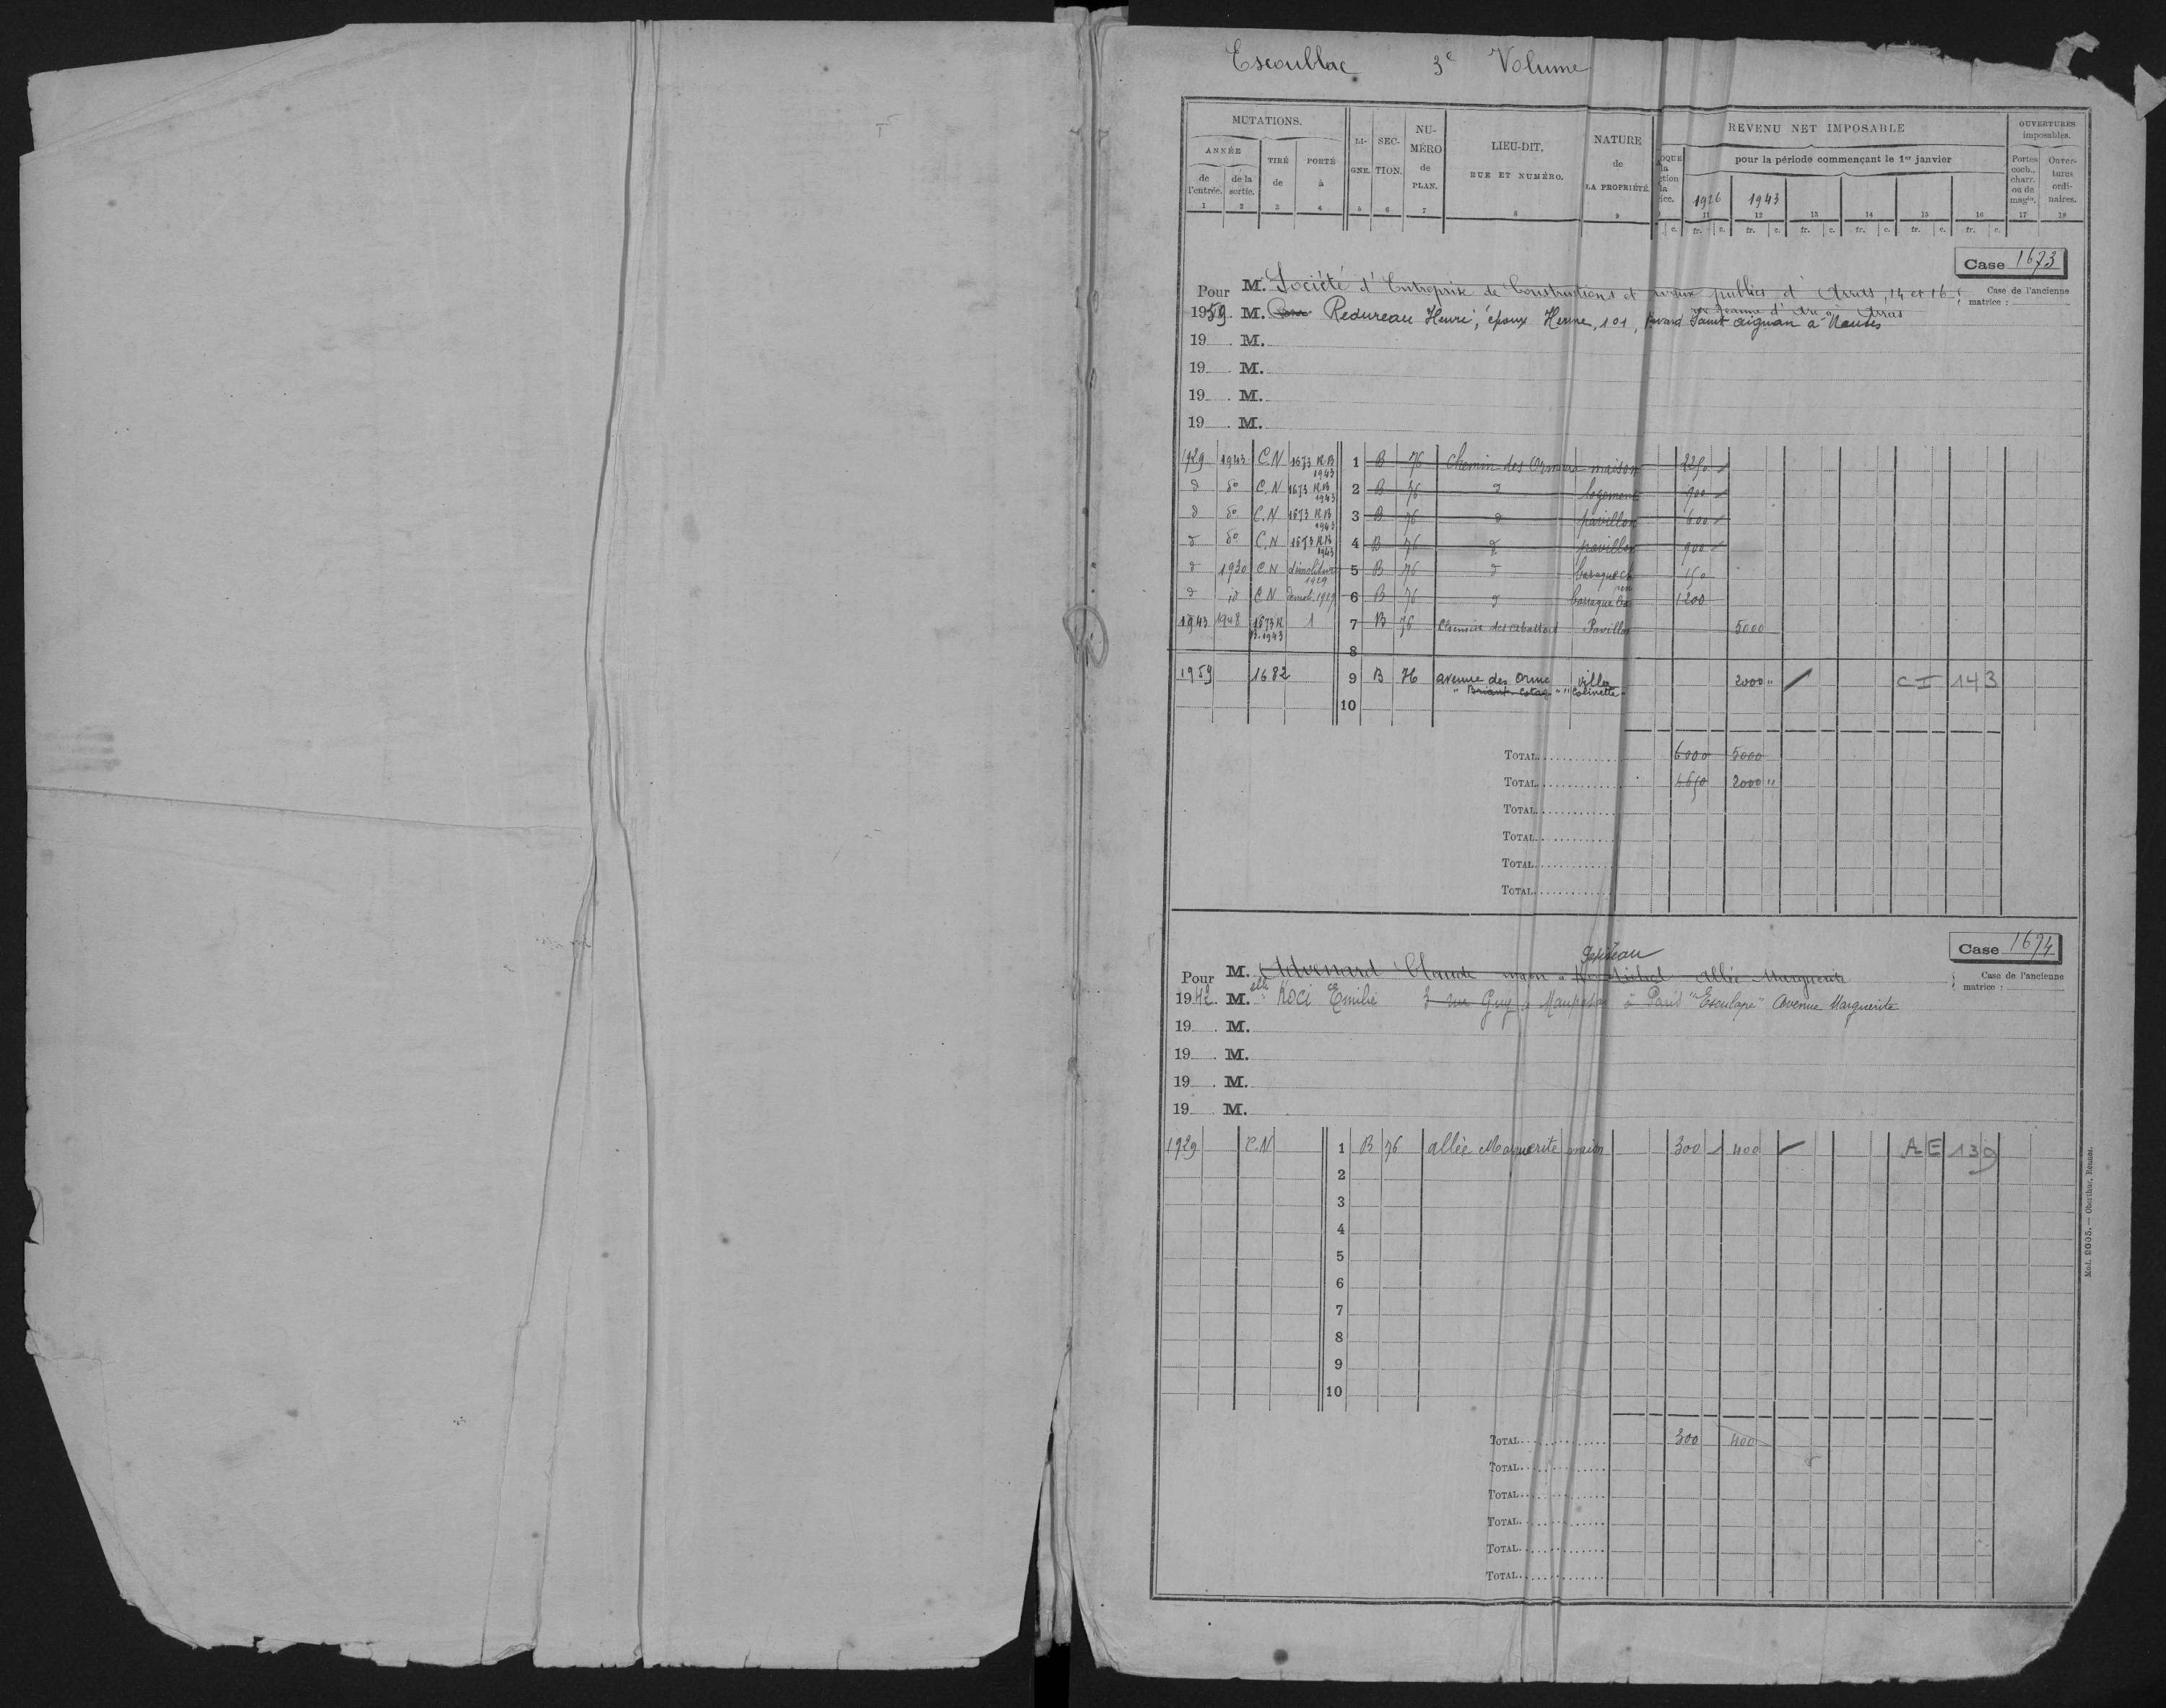 Escoublac 3e Volume
MUTATIONS. LI- SEC- NU- LIEU-DIT, NATURE REVENU NET IMPOSABLE OUVERTURES
imposables.
ANNÉE TIRÉ PORTÉ GNE. TION. MÉRO RUE ET NUMÉRO. de pour la période commençant le 1er janvier Portes Ouver-
de de la de à de LA PROPRIÉTÉ. coch., tures
l'entrée. sortie. PLAN. charr. ordi-
ou de naires.
1926 1943 magin.
1 2 3 4 5 6 7 8 9 11 12 13 14 15 16 17 18
c. fr. c. fr. c. fr. c. fr. c. fr. c. fr. c.
Case 1673
Pour M. Société d'Entreprise de Constructions et publics d'Arras, 14 et 16 Case de l'ancienne
rue Jeanne d'Arc Arras matrice :
1959. M. Redureau Henri, époux Herme, 101, Saint Aignan à Nantes
19 . M.
19 . M.
19 . M.
19 . M.
1929 1943 C.N 1673 R.B 1943 1 B 76 Chemin des Ormeaux maison 2250
d do C.N 1673 R.B 1943 2 B 76 d logement 900
d do C.N 1673 R.B 1943 3 B 76 d pavillon 600
d do C.N 1673 R.B 1943 4 B 76 d pavillon 900
d 1930 C.N démolition 1929 5 B 76 d 150
d id C.N demol. 1929 6 B 76 d barraque 1200
1943 1948 1673 R.B. 1943 1 7 B 76 Chemin des Pavillon 5000
8
1959 1682 9 B 76 avenue des Ormes villa 2000 " CI 143
"Briant-Cotag" "Colinette"
10
TOTAL 6000 5000
TOTAL 4650 2000 "
TOTAL
TOTAL
TOTAL
TOTAL
Case 1674
Pour M. Claude Allée Marguerite Case de l'ancienne
matrice :
1942. M. elle Koci Emilie 3 rue Guy de Maupassant à Paris "Esculape" Avenue Marguerite
19 . M.
19 . M.
19 . M.
19 . M.
1929 C.N 1 B 76 allée Marguerite maison 300 400 AE 139
2
3
4
5
6
7
8
9
10
TOTAL 300 400
TOTAL
TOTAL
TOTAL
TOTAL
TOTAL
Mod. 2005. — Oberthur, Rennes.